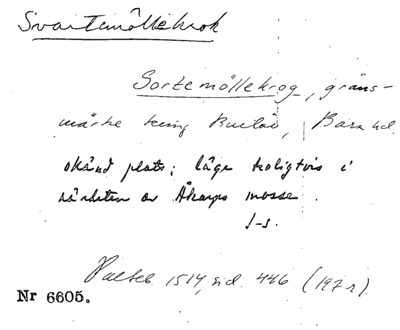 Svartemöllekrok
Sortemöllekrog, gräns-
märke kring Burlöv, Bara hd.
okänd plats; läge troligtvis i
närheten av Åkarps mosse.
J-s.
1514, sid. 446 (197 r).
Nr 6605.